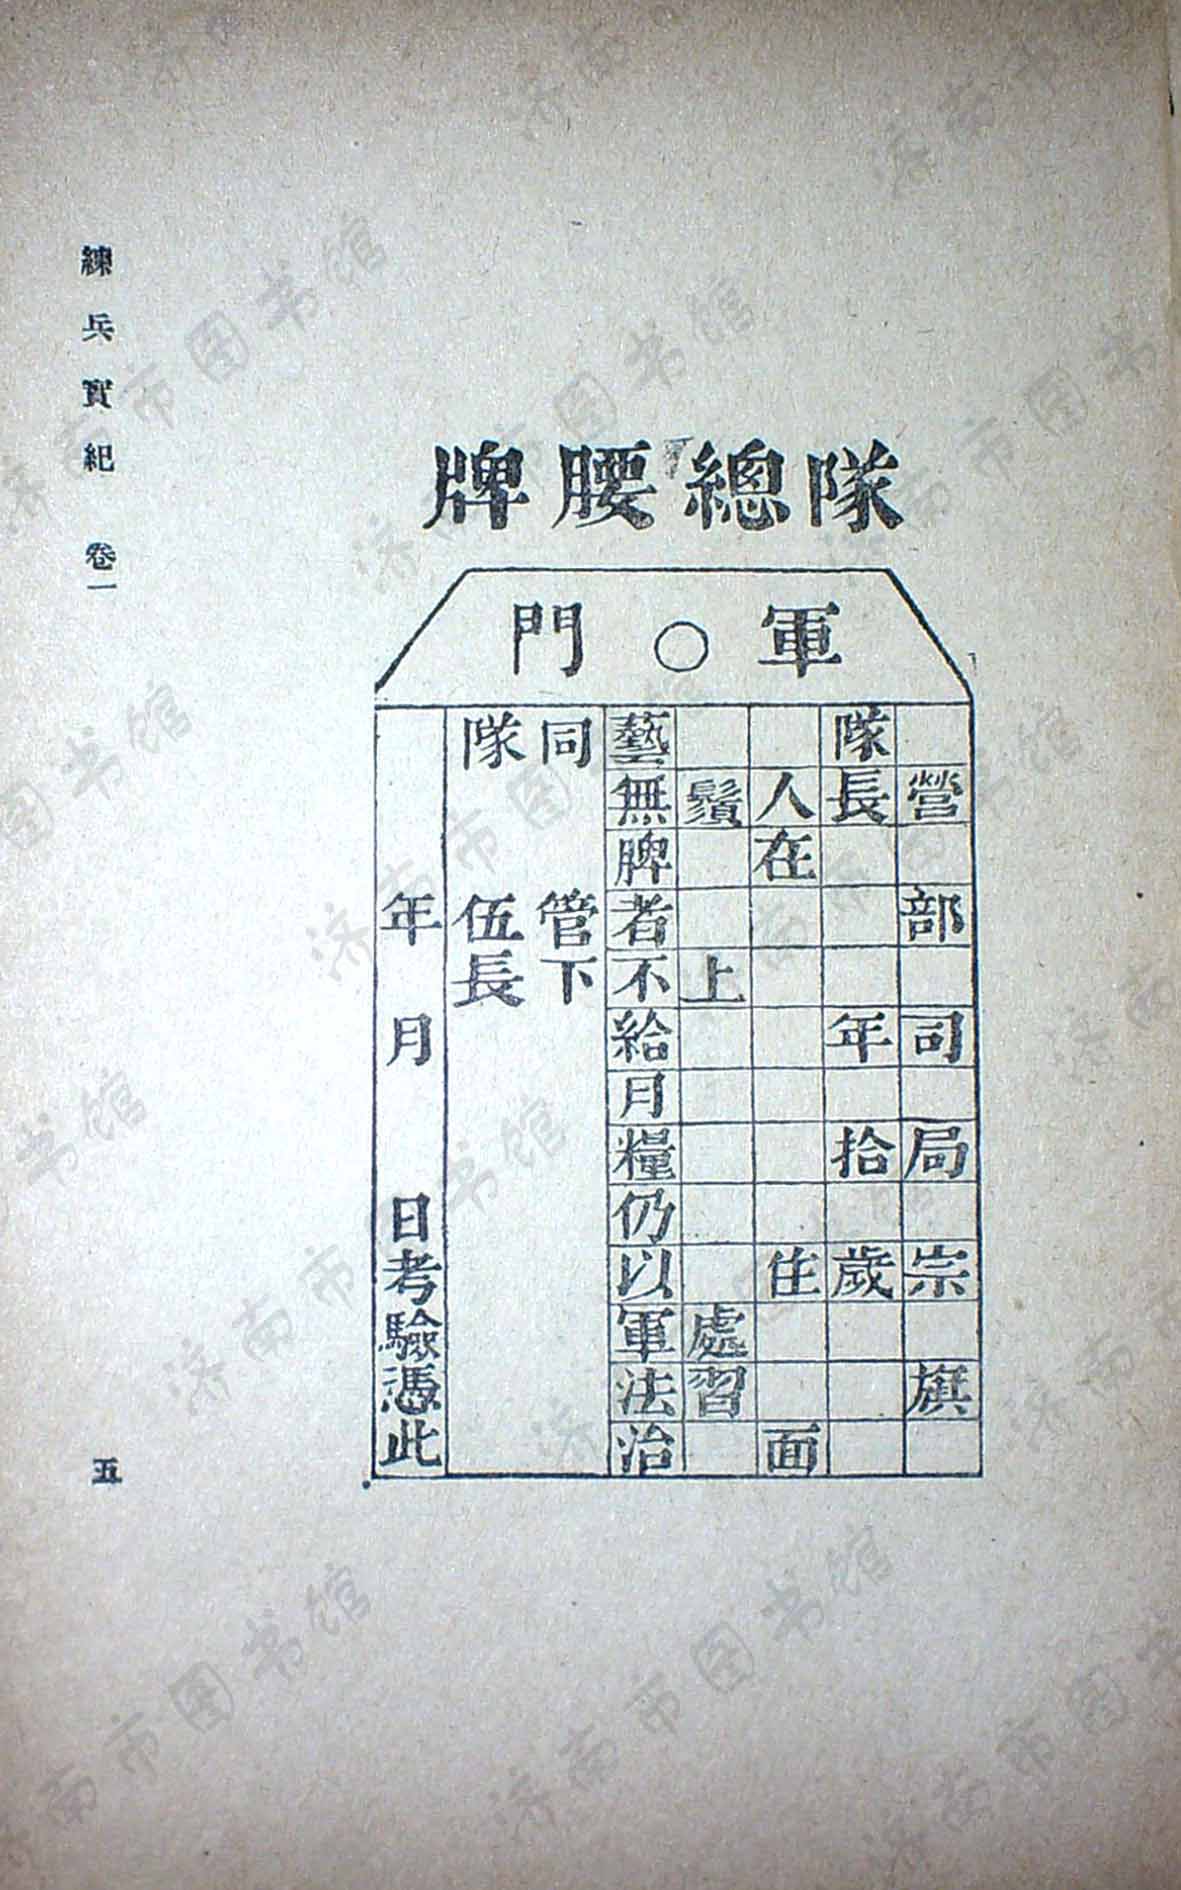 隊總腰牌
軍○門
營 部 司 局 宗 旗
隊長 年 拾 歲
人在 住 面
鬚 上 處習
藝無牌者不給月糧仍以軍法治
同 管下
隊 伍長
年 月 日考驗憑此
練兵實紀 卷一
五
济南市图书馆